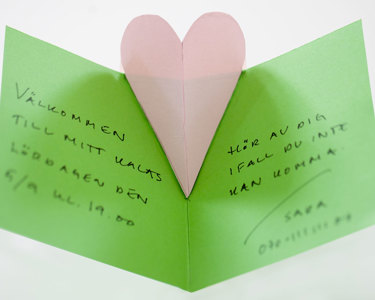 VÄLKOMMEN
TILL MITT KALAS
LÖRDAGEN DEN
5/9 KL. 19.00
HÖR AV DIG
IFALL DU INTE
KAN KOMMA.
SARA